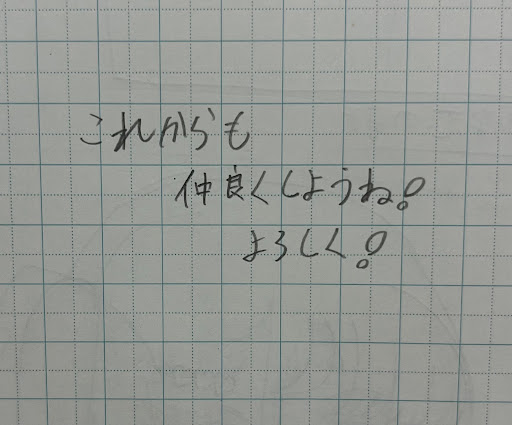 これからも
仲良くしようね!
よろしく!